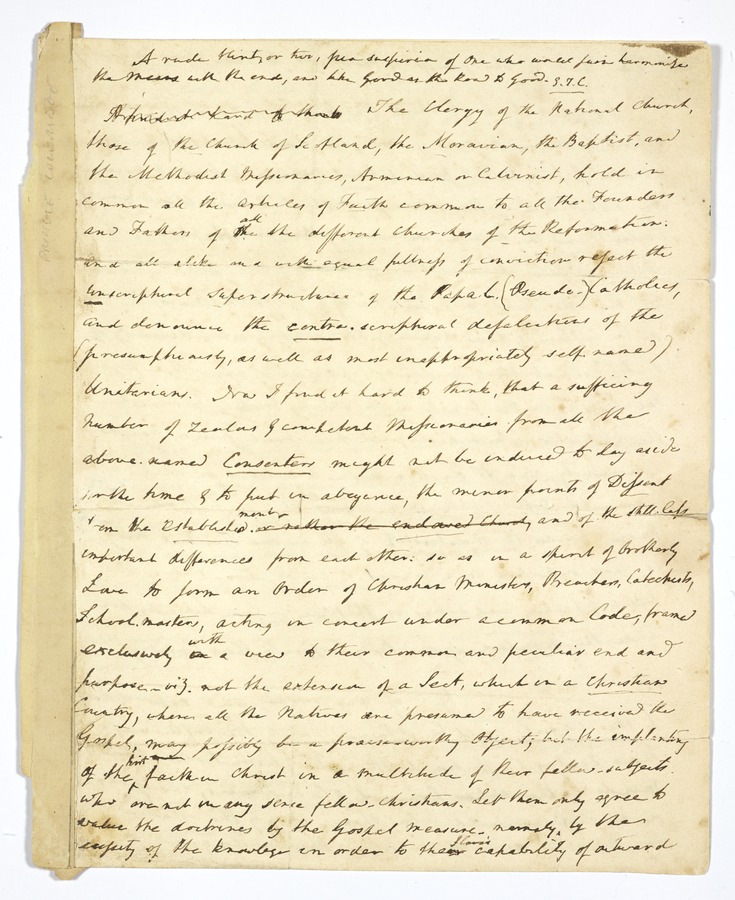 A rude Hint, or two, from suspicion of one who would fain harmonize
the means with the end, and take Good as the Road to Good. S.T.C.
The Clergy of the National Church,
those of the Church of Scotland, the Moravian, the Baptist, and
the Methodist Missionaries, Arminian or Calvinist, hold in
common all the articles of Faith common to all the Founders
and Fathers of all the different Churches of the Reformation:
and all alike and with equal fullness of conviction reject the
unscriptural superstructures of the Papal (Pseudo-) Catholics,
and denounce the contra-scriptural defalcations of the
(presumptuously, as well as most inappropriately self-named)
Unitarians. Now I find it hard to think, that a sufficing
number of zealous & competent Missionaries from all the
above-named Consenters might not be induced to lay aside
for the time & to put in abeyance, the minor points of Dissent
from the Establishment or rather the endowed Church, and of the still less
important differences from each other: so as in a spirit of brotherly
Love to form an Order of Christian Ministers, Preachers, Catechists,
School-masters, acting in concert under a common Code, framed
exclusively with a view to their common and peculiar end and
purpose—viz. not the extension of a Sect, which in a Christian
Country, where all the Natives are presumed to have received the
Gospel, may possibly be a praise-worthy Object; but the implanting
of the first faith in Christ in a multitude of their fellow-subjects
who are not in any sense fellow-christians. Let them only agree to
value the doctrines by the Gospel measure, namely, by the
necessity of the knowlege in order to the Slave's capability of outward